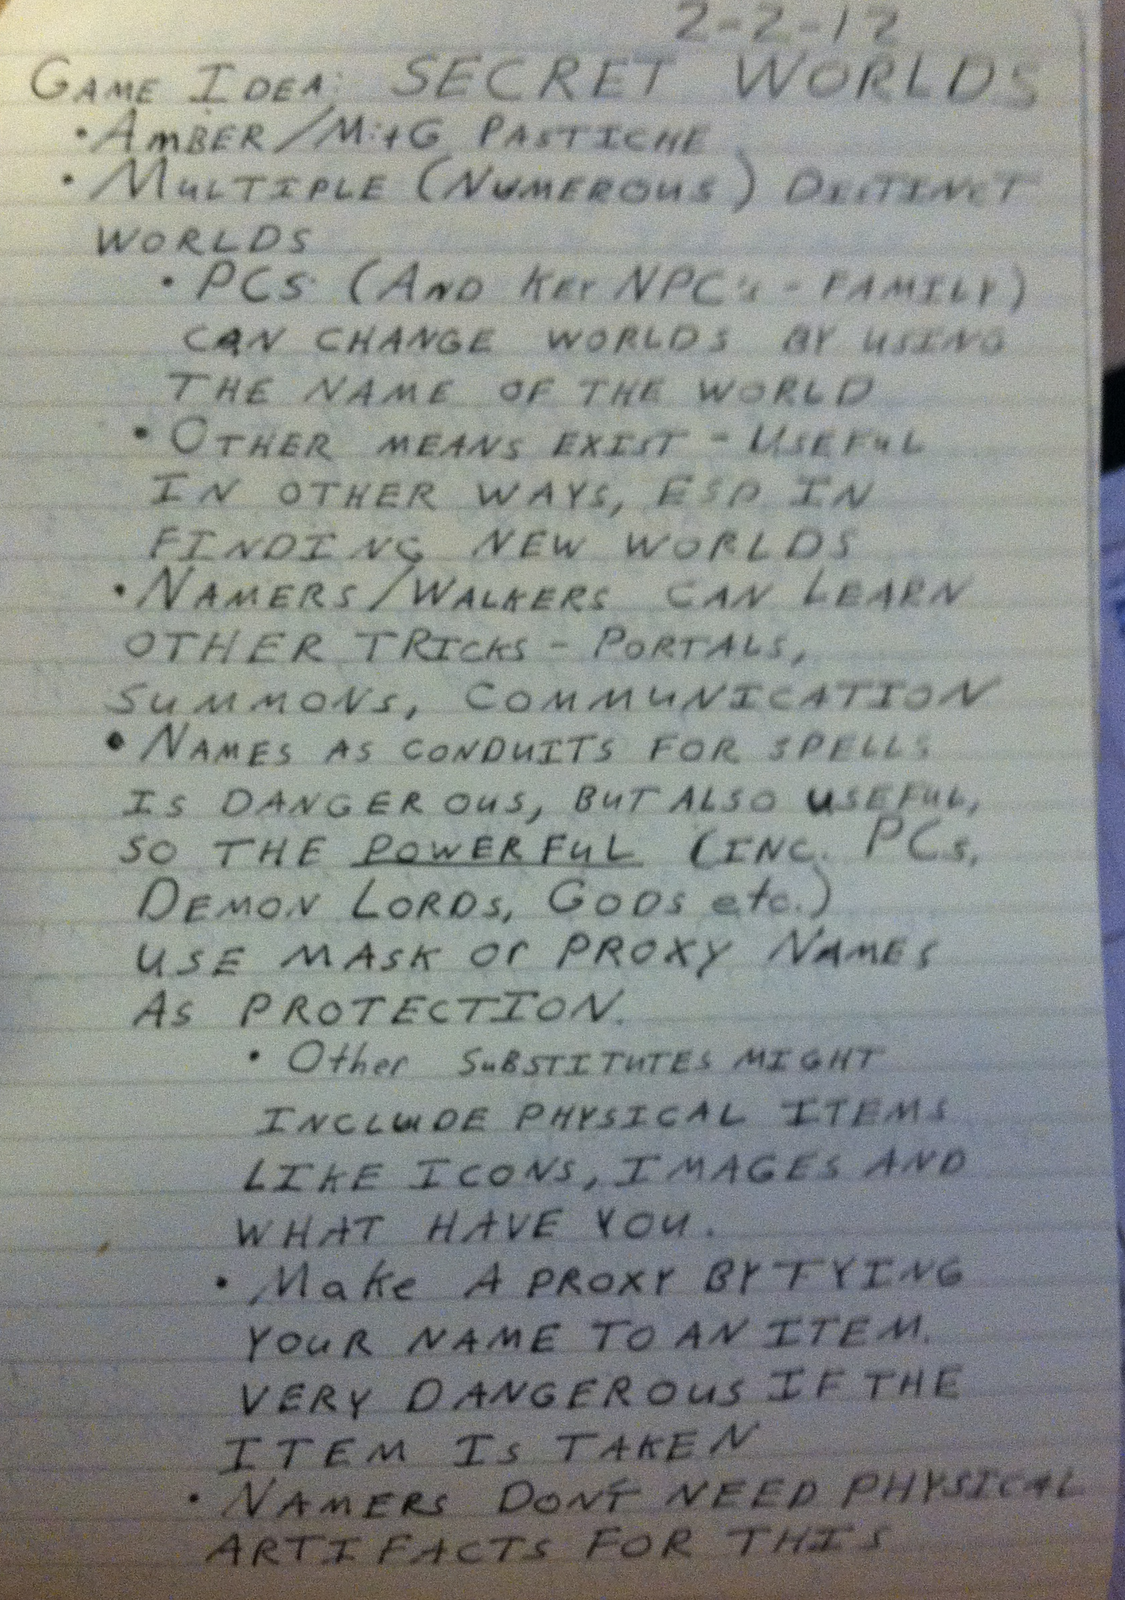 2-2-12
GAME IDEA: SECRET WORLDS
• AMBER/M:tG PASTICHE
• MULTIPLE (NUMEROUS) DISTINCT
WORLDS
• PCS (AND KEY NPC's - FAMILY)
CAN CHANGE WORLDS BY USING
THE NAME OF THE WORLD
• OTHER MEANS EXIST - USEFUL
IN OTHER WAYS, ESP IN
FINDING NEW WORLDS
• NAMERS/WALKERS CAN LEARN
OTHER TRICKS - PORTALS,
SUMMONS, COMMUNICATION
• NAMES AS CONDUITS FOR SPELLS
IS DANGEROUS, BUT ALSO USEFUL,
SO THE POWERFUL (INC. PCs,
DEMON LORDS, GODS etc.)
USE MASK or PROXY NAMES
AS PROTECTION.
• Other SUBSTITUTES MIGHT
INCLUDE PHYSICAL ITEMS
LIKE ICONS, IMAGES AND
WHAT HAVE YOU.
• Make A PROXY BY TYING
YOUR NAME TO AN ITEM.
VERY DANGEROUS IF THE
ITEM IS TAKEN
• NAMERS DON'T NEED PHYSICAL
ARTIFACTS FOR THIS